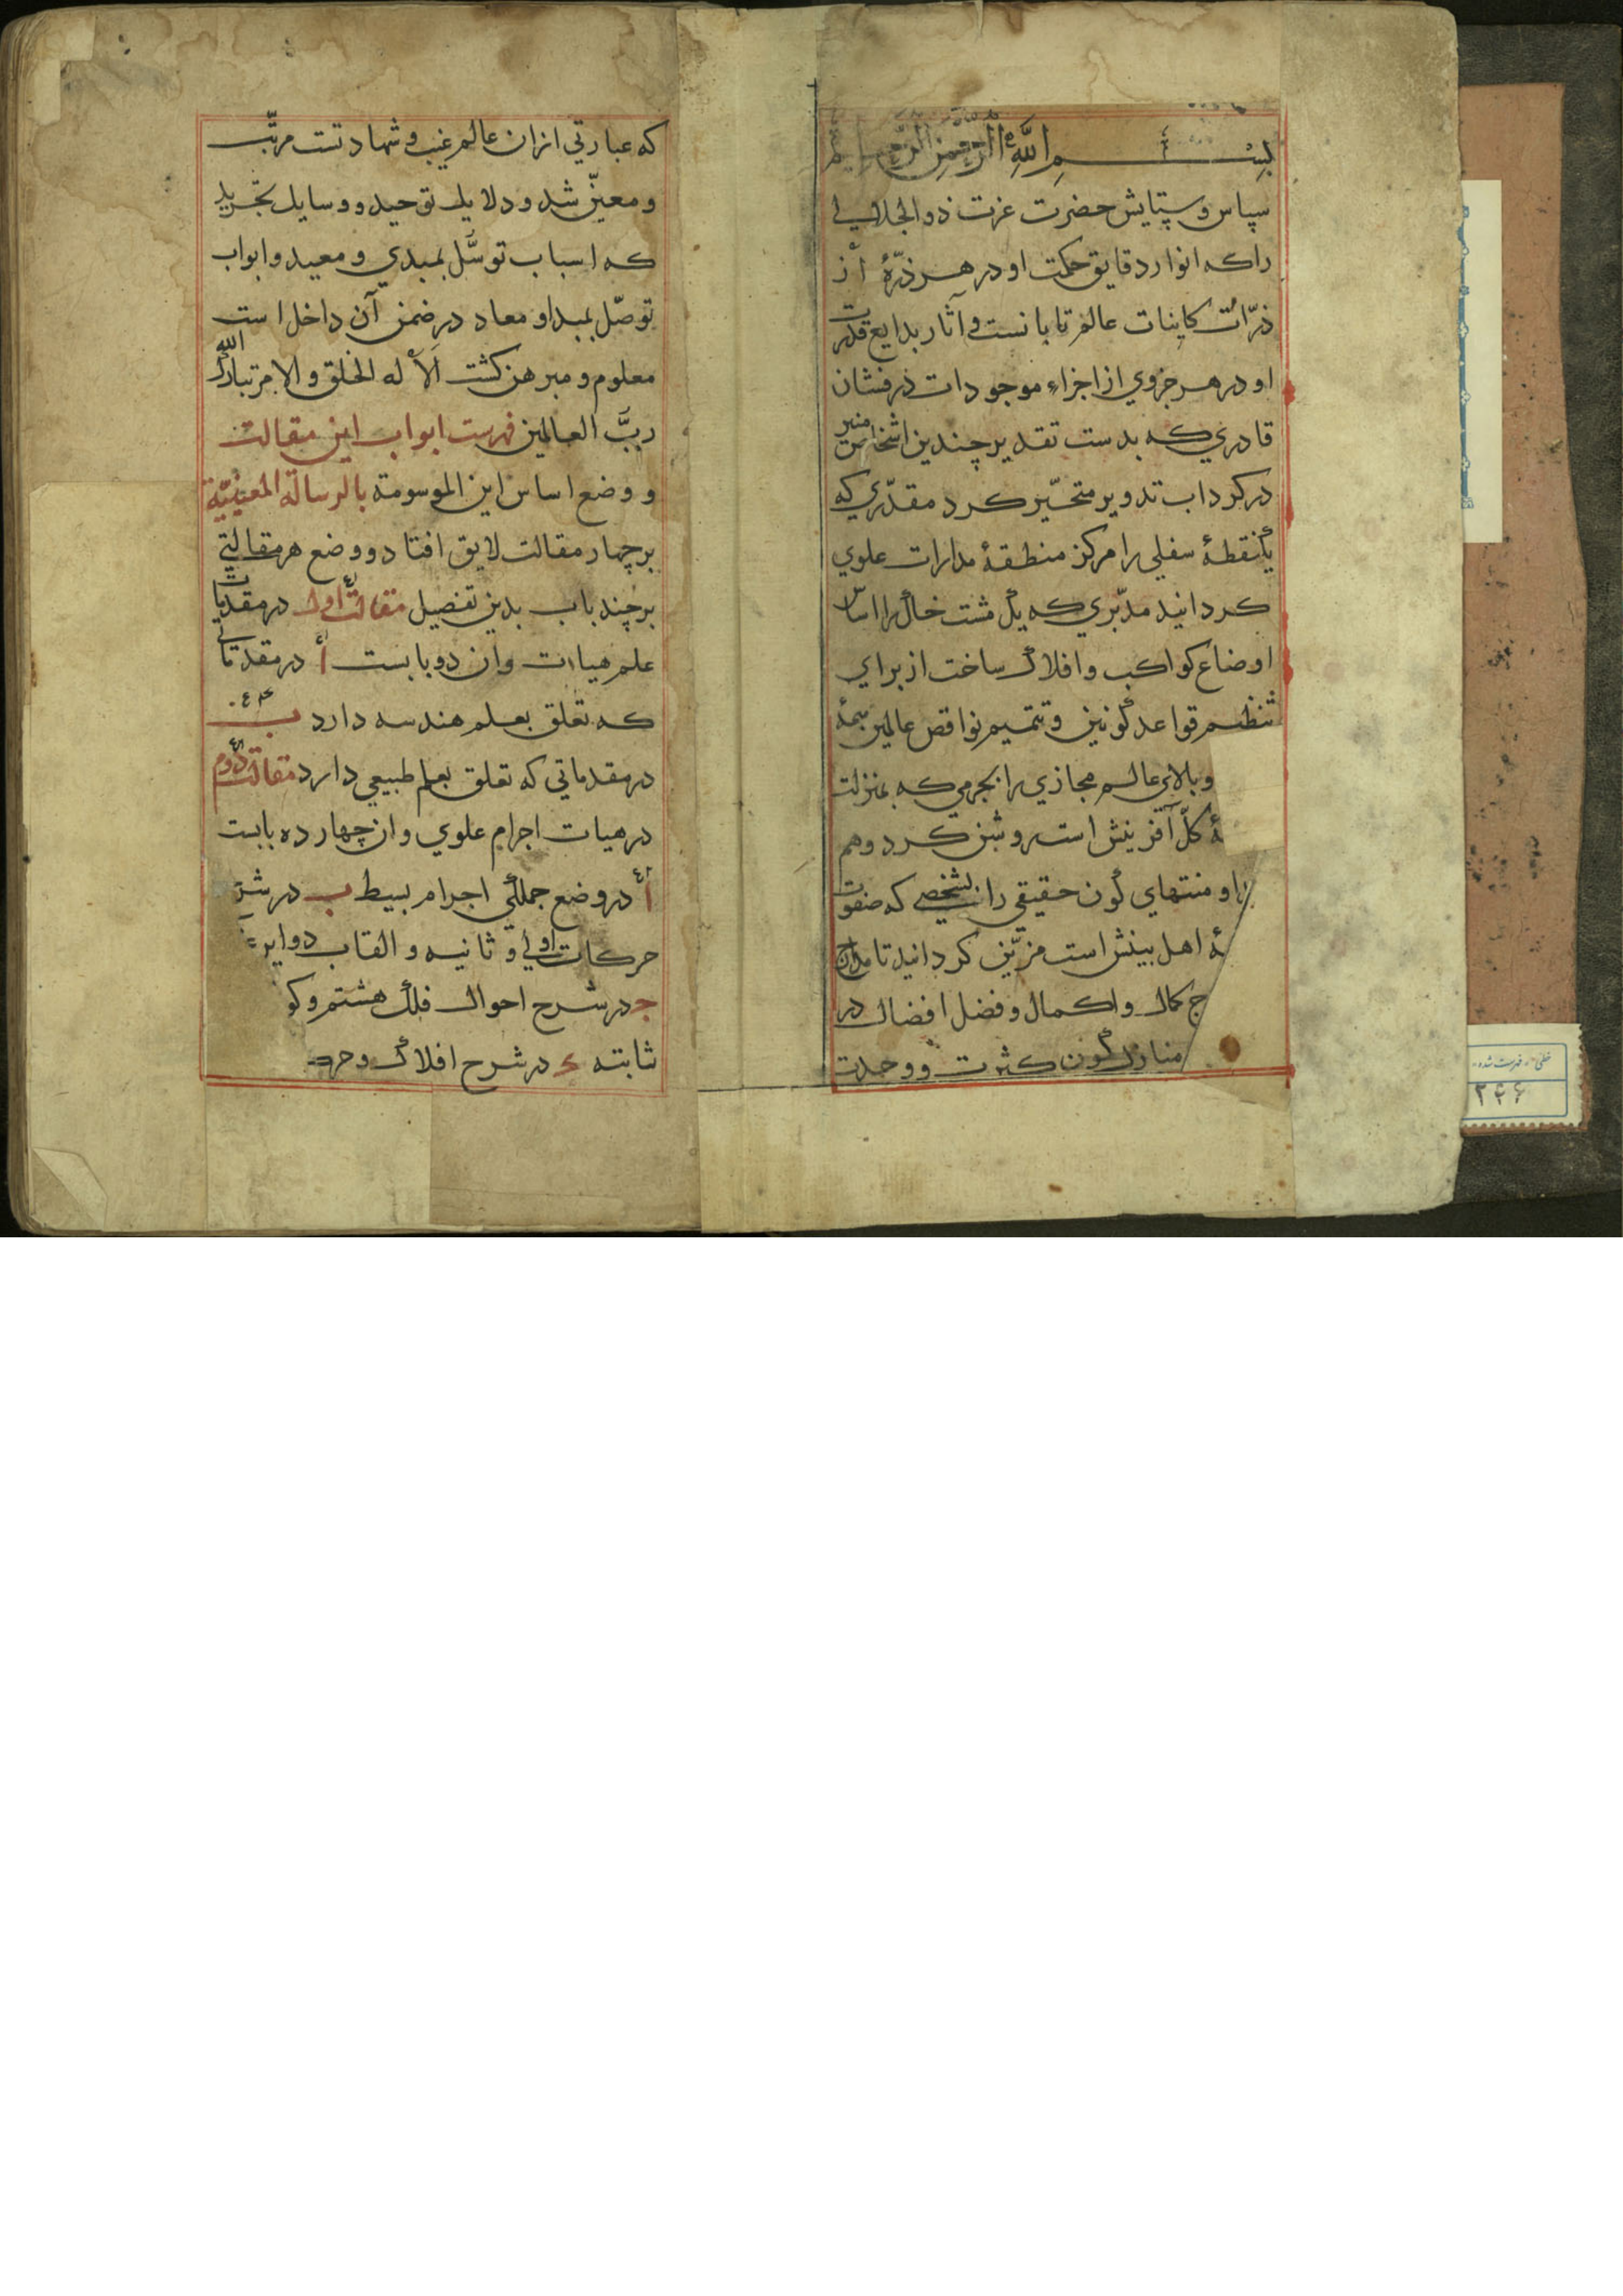 بسم الله الرحمن الرحیم
سپاس و ستایش حضرت عزت ذو الجلالی
را که انوار دقایق حکمت او در هر ذرّهٔ از
ذرّات کاینات عالم تابانست و آثار بدایع قدرت
او در هر جزوي از اجزاء موجودات درفشان
قادري که بدست تقدیر چندین اشخاص منیر
در کرداب تدویر متحیّر کرد مقدّري که
یک نقطهٔ سفلي را مرکز منطقهٔ مدارات علوي
کردانید مدبّري که یک مشت خاک را اساس
اوضاع کواکب و افلاک ساخت از براي
تنظیم قواعد کونین و تتمیم نواقص عالمین
وبالاي عالم مجازي را بجرمي که بمنزلت
کلّ آفرینش است روشن کرد وهم
او منتهاي کون حقیقي را بشخصي که صفوت
اهل بینش است مزیّن کردانید تا مدارج
کمال و اکمال و فضل افضال در
منازل کون کثرت و وحدت
که عبارتي ازان عالم غیب و شهادتست مرتّب
و معیّن شد و دلایل توحید و وسایل تجرید
که اسباب توسّل بمبدي و معید و ابواب
توصّل بمبدا و معاد در ضمن آن داخل است
معلوم و مبرهن کشت الا له الخلق والامر تبارک الله
ربّ العالمین فهرست ابواب این مقالت
و وضع اساس این الموسومة بالرسالة المعینیّة
بر چهار مقالت لایق افتاد و وضع هر مقالتي
بر چند باب بدین تفصیل مقالت اول در مقدمات
علم هیات وان دو بابست أ در مقدماتي
که تعلق بعلم هندسه دارد ب
در مقدماتي که تعلق بعلم طبیعي دارد مقالت دوم
در هیات اجرام علوي وان چهارده بابست
أ در وضع جملکي اجرام بسیط ب در شرح
حرکات اولی و ثانیه و القاب دوایر
ج در شرح احوال فلک هشتم و کو
ثابته د در شرح افلاک و حر
خطی - فهرست شده